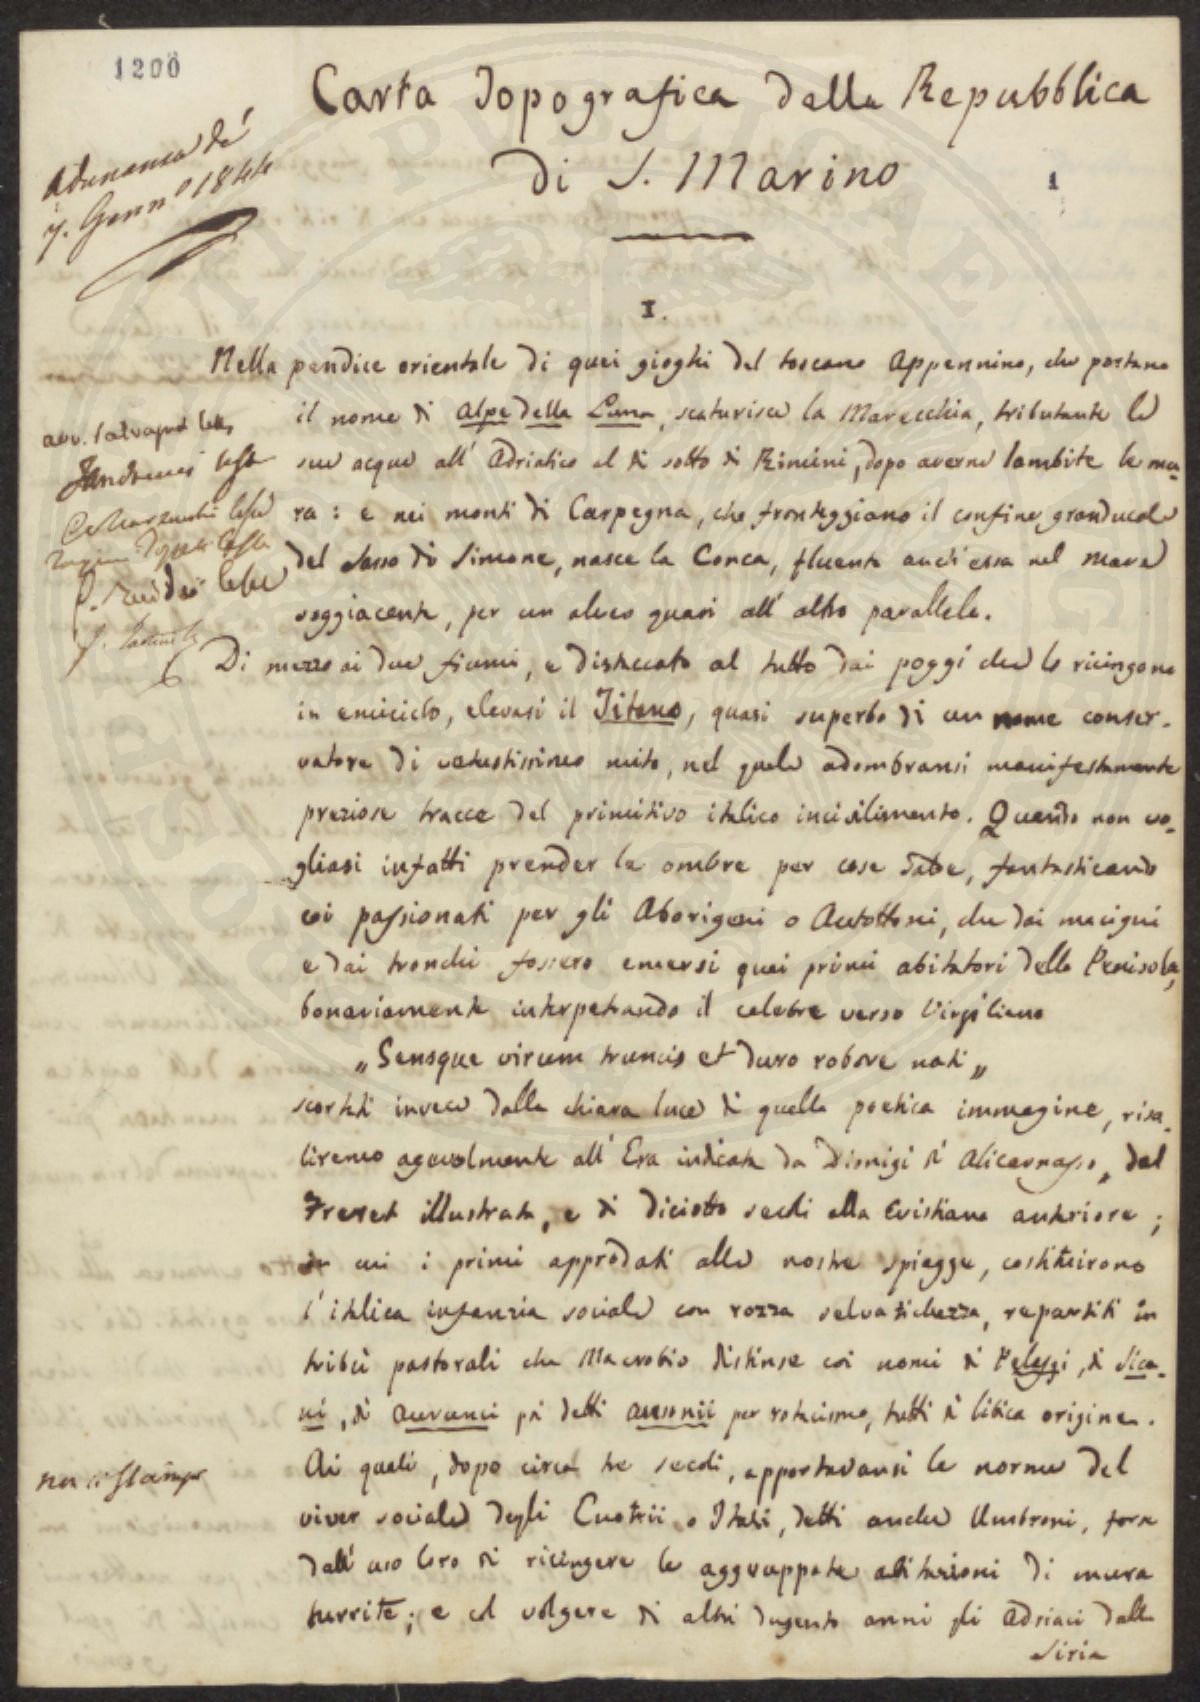 1200
Carta Topografica della Repubblica
di S. Marino
Adunanza de'
7. Genn.o 1844
1
I.
Nella pendice orientale di quei gioghi del toscano Appennino, che portano
il nome di Alpe della Luna, scaturisce la Marecchia, tributante le
sue acque all' Adriatico al di sotto di Rimini, dopo averne lambite le mu-
ra: e nei monti di Carpegna, che fronteggiano il confine granducale
del Sasso di Simone, nasce la Conca, fluente anch'essa nel mare
soggiacente, per un alveo quasi all' altro parallelo.
Di mezzo ai due fiumi, e distaccato al tutto dai poggi che lo ricingono
in emiciclo, elevasi il Titano, quasi superbo di un nome conser-
vatore di vetustissimo mito, nel quale adombransi manifestamente
preziose tracce del primitivo italico incivilimento. Quando non vo-
gliasi infatti prender le ombre per cose salde, fantasticando
coi passionati per gli Aborigeni o Autottoni, che dai macigni
e dai tronchi fossero emersi quei primi abitatori della Penisola,
bonariamente interpetrando il celebre verso Virgiliano
„Gensque virum truncis et duro robore nati„
scortati invece dalla chiara luce di quella poetica immagine, risa-
liremo agevolmente all' Era indicata da Dionigi di Alicarnasso, dal
Freret illustrata, e di diciotto secoli alla Cristiana anteriore;
in cui i primi approdati alle nostre spiagge, costituirono
l'italica infanzia sociale con rozza selvatichezza, repartiti in
tribù pastorali che Macrobio distinse coi nomi di Pelasgi, di Sica-
ni, di Aurunci poi detti Ausonii per rotacismo, tutti di litica origine.
non si stampi
Ai quali, dopo circa tre secoli, apportavansi le norme del
viver sociale degli Enotrii o Itali, detti anche Umbroni, forse
dall' uso loro di ricingere le aggruppate abitazioni di mura
turrite; e al volgere di altri dugento anni gli Adriaci dalla
Siria